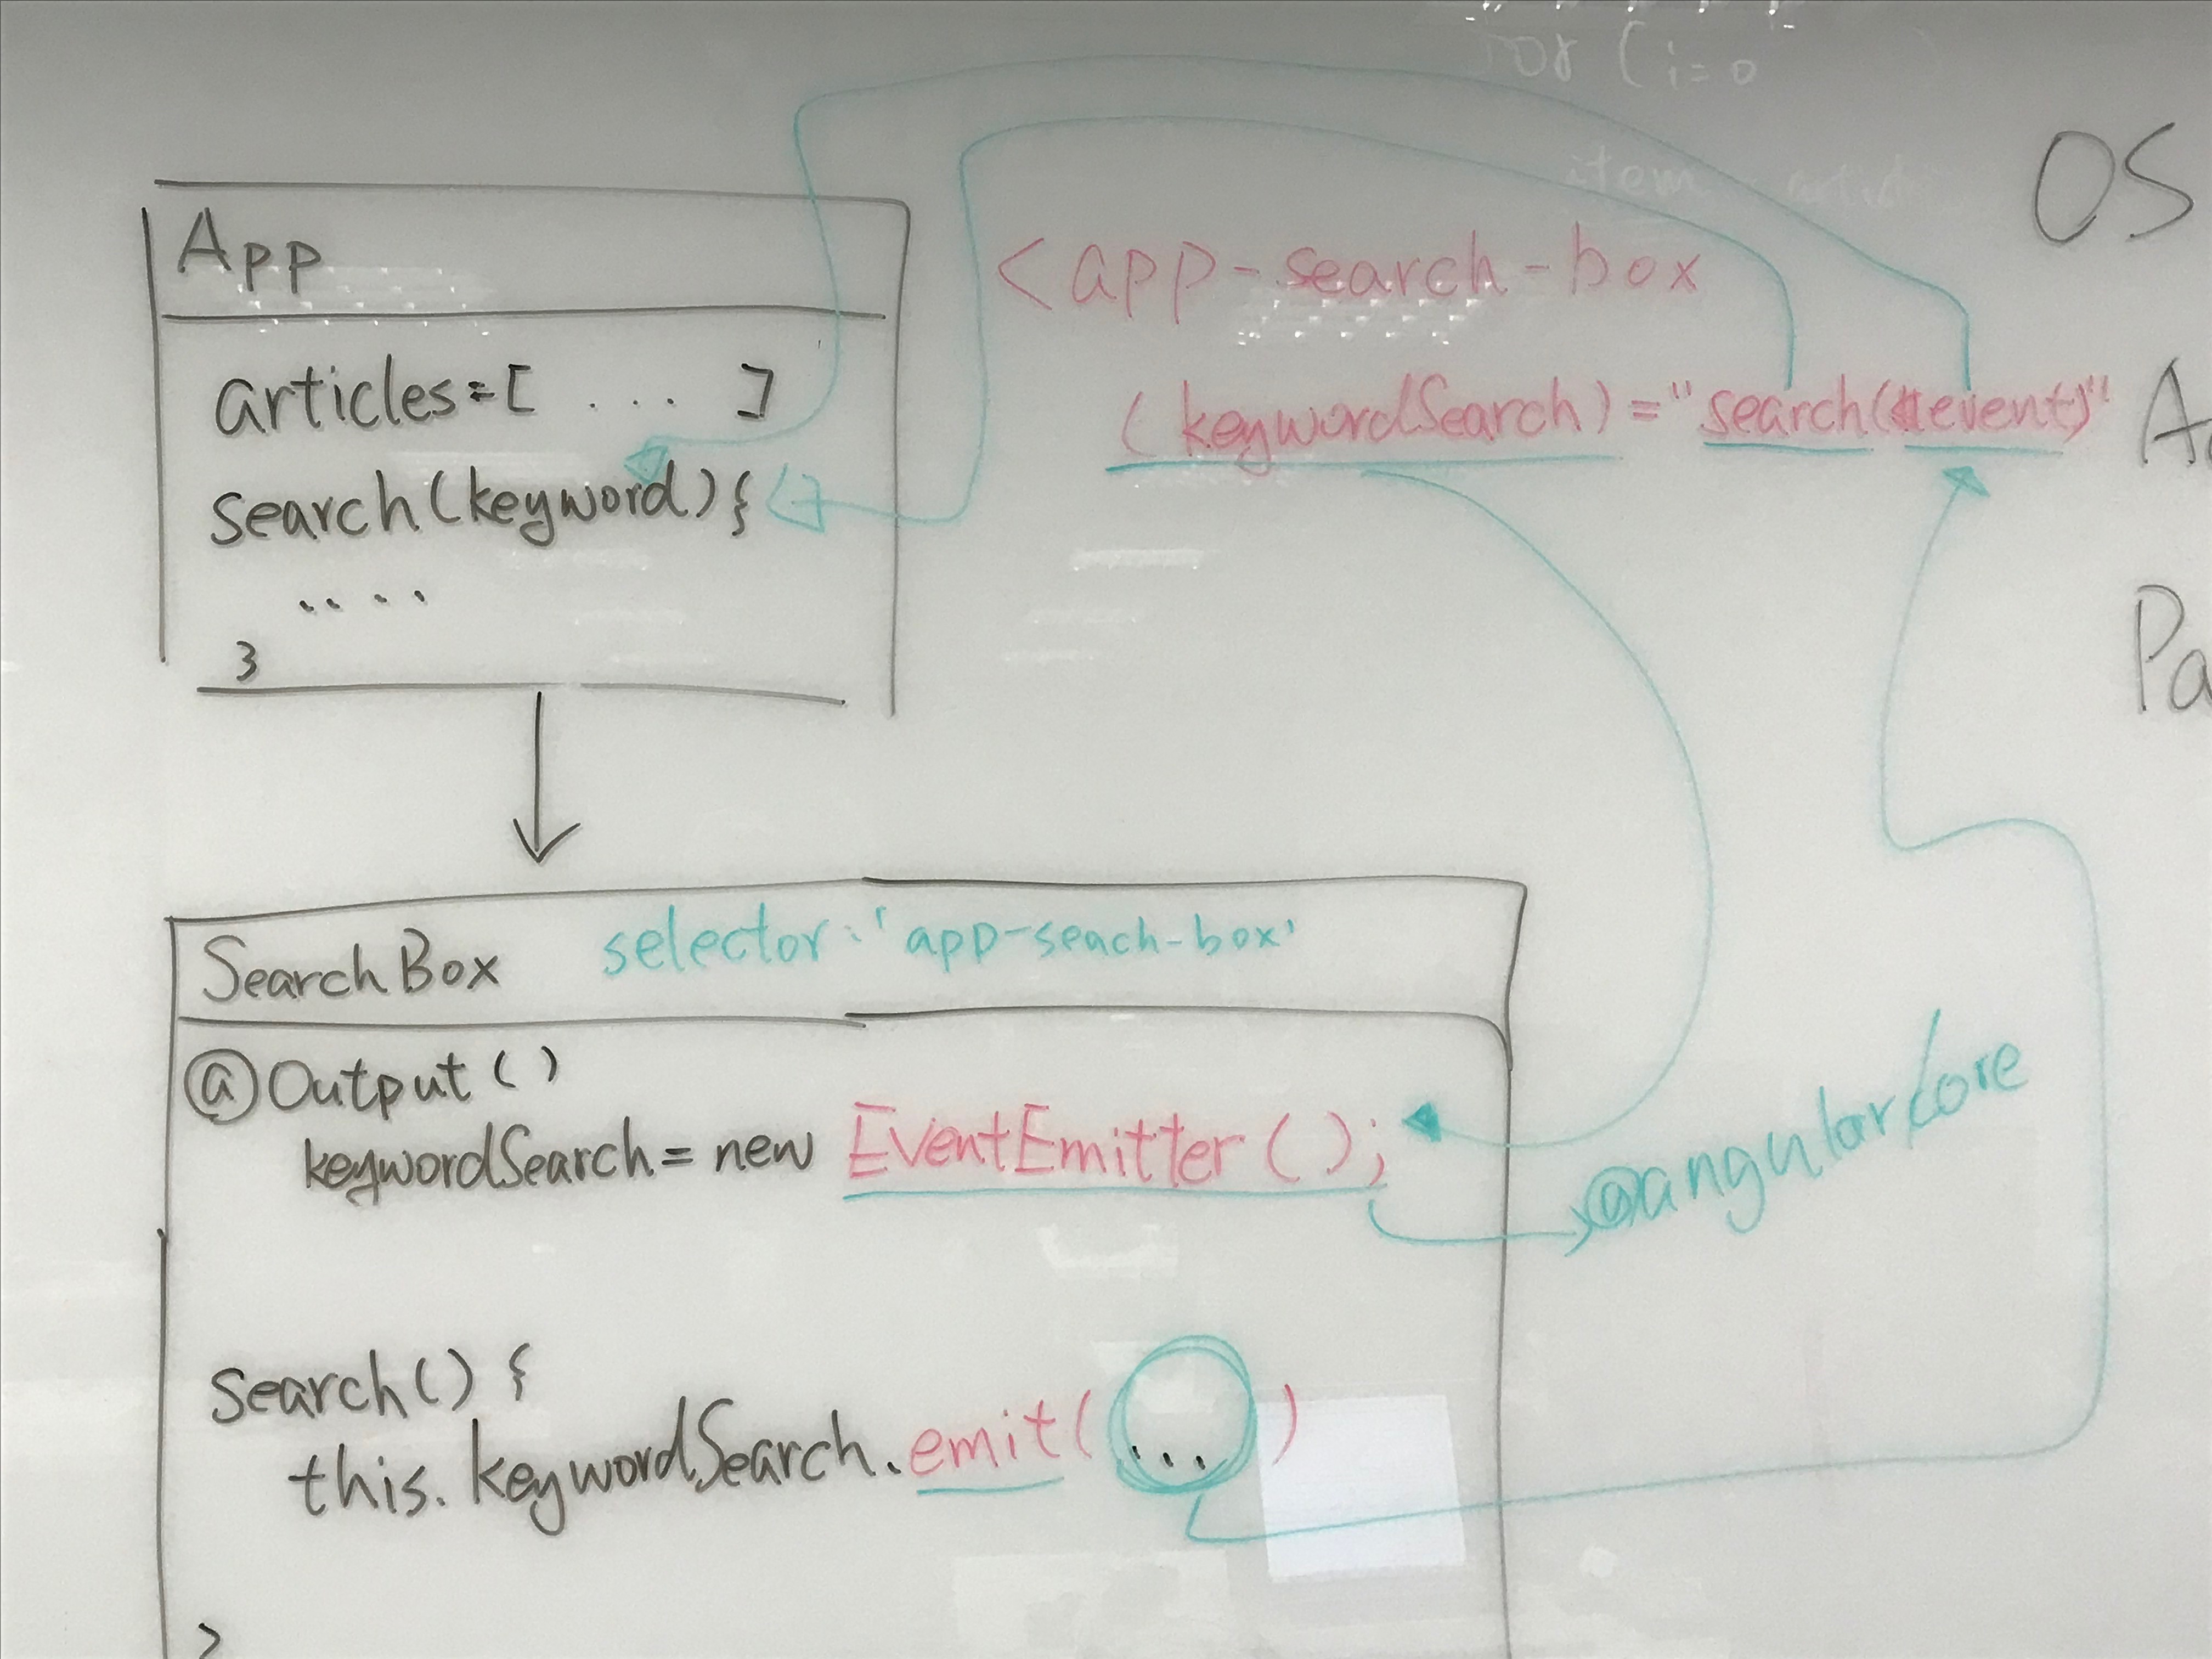 for (i=0
item
OS
App
articles=[ ... ]
search(keyword){
....
}
<app-search-box
(keywordSearch)="search($event)"
Pa
SearchBox selector:'app-seach-box'
@Output()
keywordSearch= new EventEmitter();
@angular/core
search() {
this.keywordSearch.emit( ... )
}